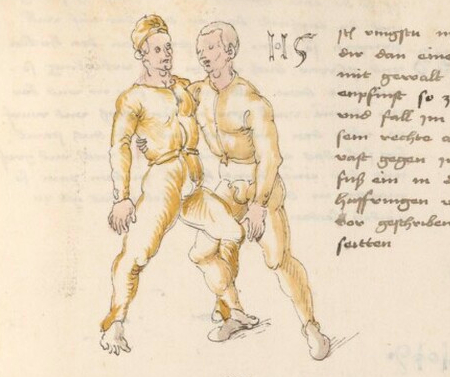 Itē ringstu
dir dan eine
mit gewalt
enpfinst so
vnd fall Im
sein rechte
vast gegen
fuß ein in
huffringen
vor geschriben
seitten